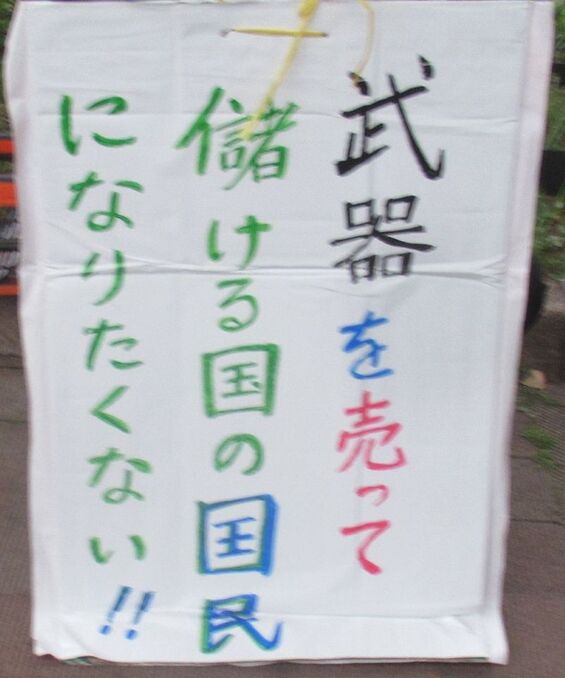 武器を売って
儲ける国の国民
になりたくない!!